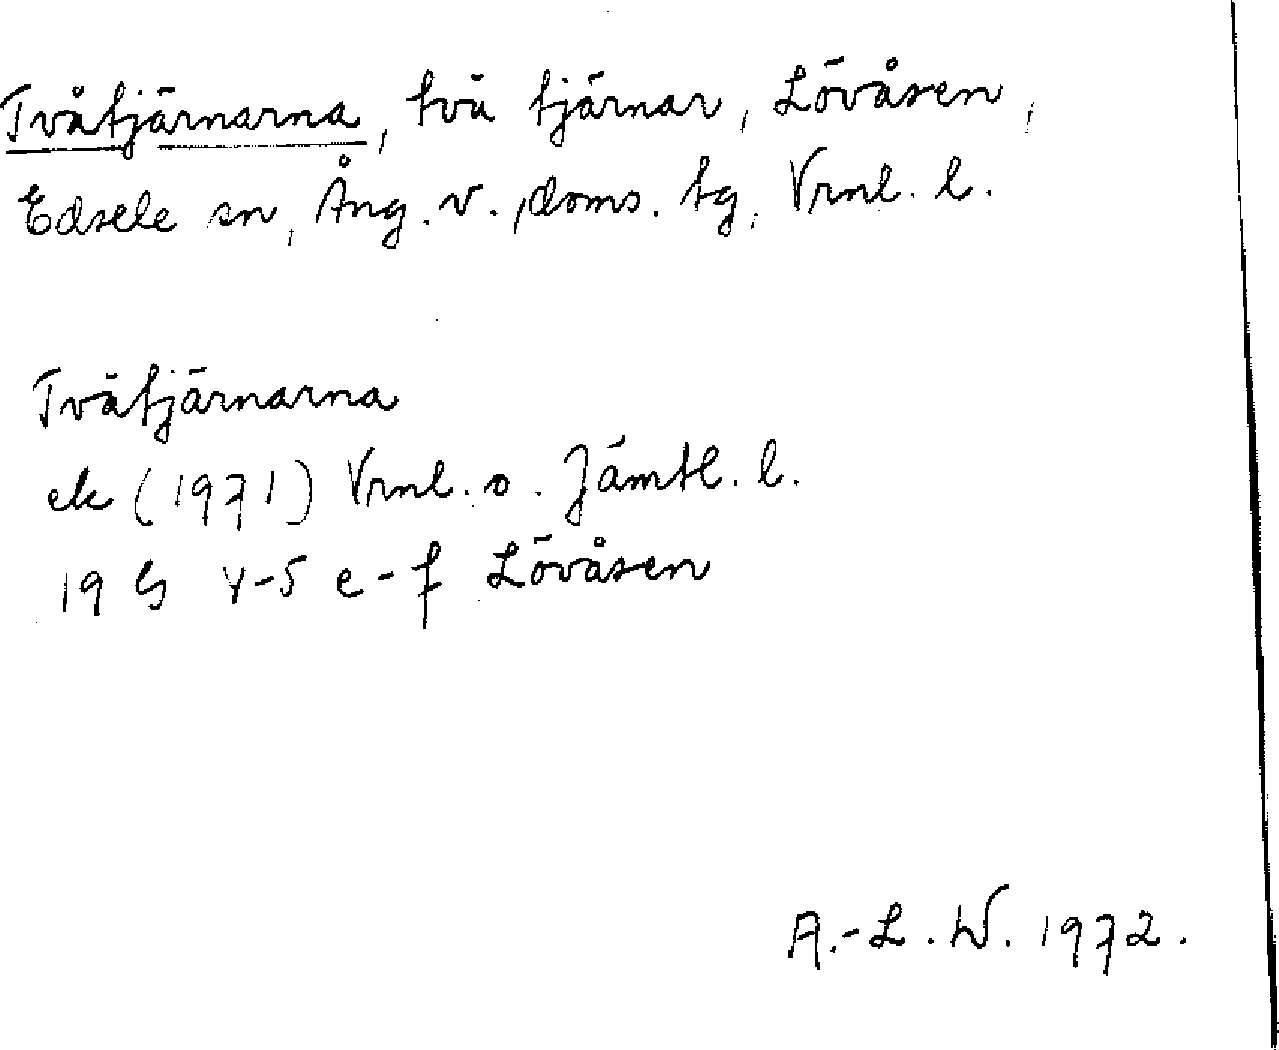 Tvåtjärnarna, två tjärnar, Lövåsen,
Edsele sn, Ång. v., doms. tg, Vrnl. l.
Tvåtjärnarna
ek (1971) Vrnl. o. Jämtl. l.
19 G 4-5 e-f Lövåsen
A.-L. W. 1972.